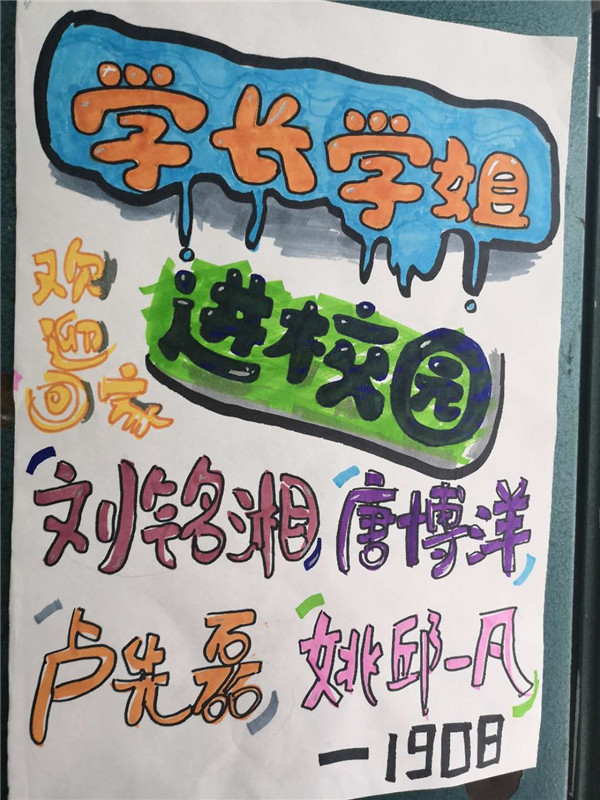 学长学姐
进校园
欢迎回家
刘铭湘 唐博洋
卢先磊 姚邱一凡
—1908